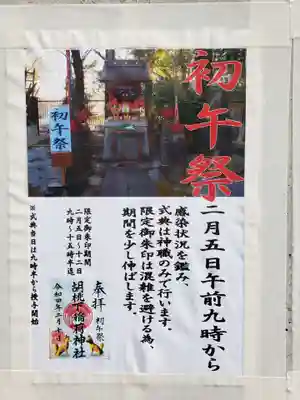 初午祭
二月五日午前九時から
感染状況を鑑み、
式典は神職のみで行います。
限定御朱印は混雑を避ける為、
期間を少し伸ばします。
初午祭
限定御朱印期間
二月五日〜十二日
九時〜十五時半迄
奉拝
初午祭
胡桃下稲荷神社
令和四年二月
※式典当日は九時半から授与開始